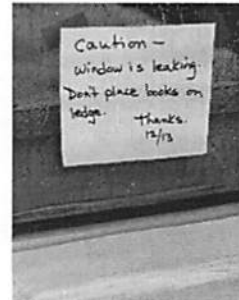 Caution -
Window is leaking.
Don't place books on
ledge.
Thanks.
12/13